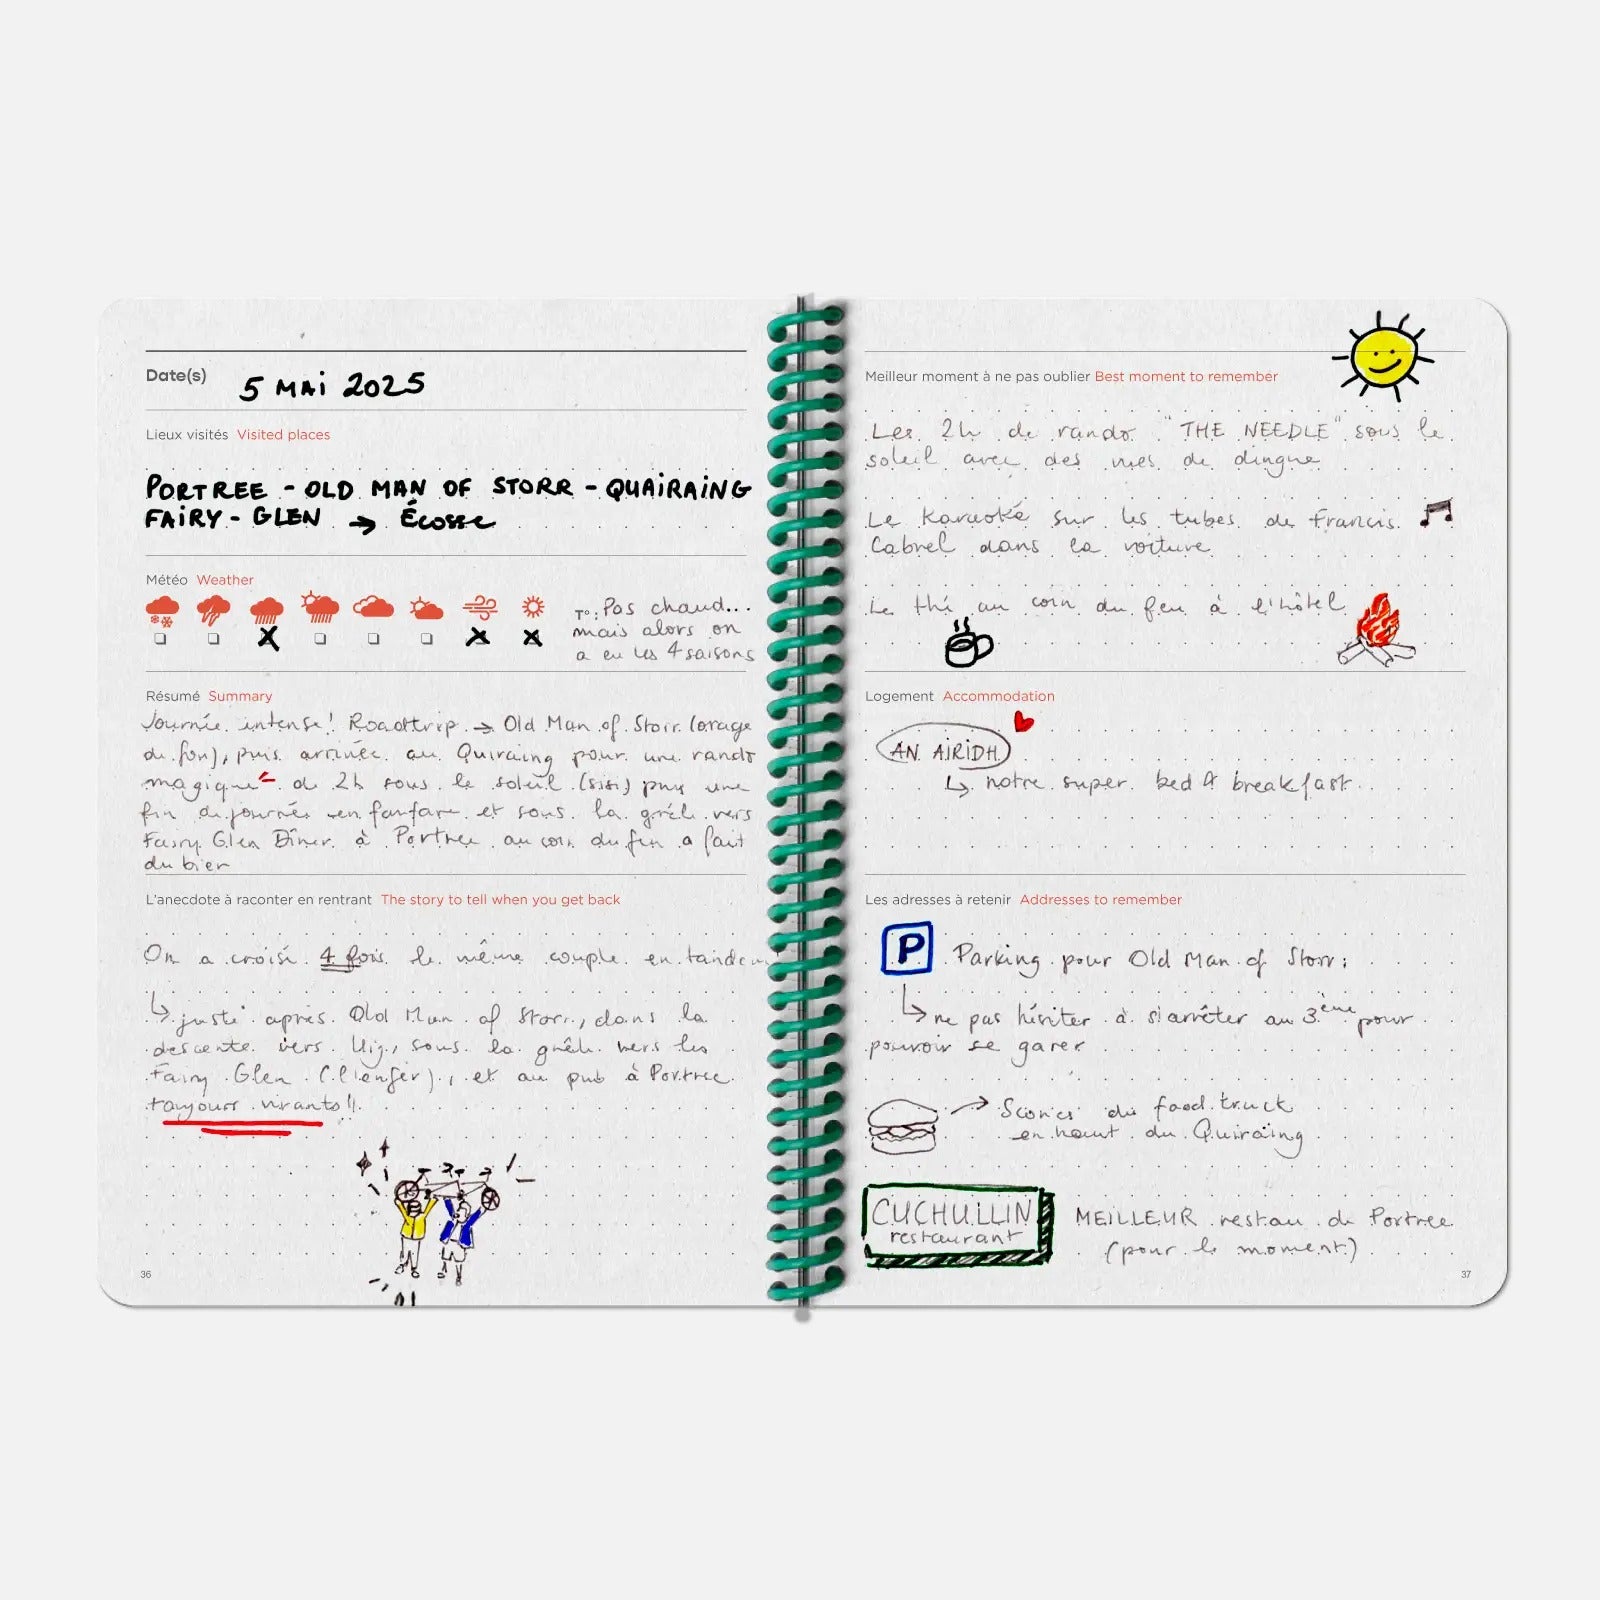 Date(s) 5 MAI 2025
Lieux visités Visited places
PORTREE - OLD MAN OF STORR - QUAIRAING
FAIRY - GLEN → ÉCOSSE
Météo Weather
T°: Pas chaud...
mais alors on
a eu les 4 saisons
Résumé Summary
Journée intense! Roadtrip → Old Man of Storr (orage
de fou), puis arrivée au Quiraing pour une rando
magique de 2h sous le soleil (sisi) puis une
fin de journée en fanfare et sous la grêle vers
Fairy Glen Dîner à Portree au coin du feu a fait
du bien
L'anecdote à raconter en rentrant The story to tell when you get back
On a croisé 4 fois le même couple en tandem
↳ juste après Old Man of Storr, dans la
descente vers Uig, sous la grêle vers les
Fairy Glen (l'enfer), et au pub à Portree
toujours vivants!!
36
Meilleur moment à ne pas oublier Best moment to remember
Les 2h de rando "THE NEEDLE" sous le
soleil avec des vues de dingue
Le Karaoké sur les tubes de Francis
Cabrel dans la voiture
Le thé au coin du feu à l'hôtel
Logement Accommodation
AN AIRIDH
↳ notre super bed & breakfast
Les adresses à retenir Addresses to remember
P Parking pour Old Man of Storr:
↳ ne pas hésiter à s'arrêter au 3ème pour
pouvoir se garer
→ Scones du food truck
en haut du Quiraing
CUCHUILLIN
restaurant
MEILLEUR restau de Portree
(pour le moment)
37